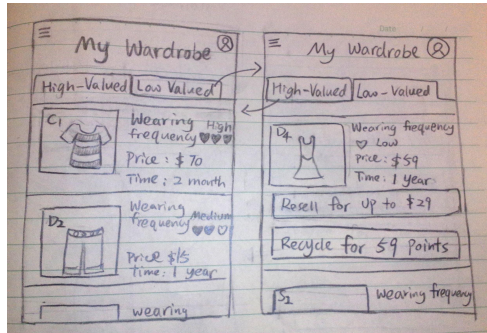 My Wardrobe
High-Valued
Low Valued
C1
Wearing
frequency
High
Price : $ 70
Time : 2 month
D2
Wearing
frequency
Medium
Price $15
time: 1 year
wearing
My Wardrobe
High-Valued
Low-Valued
D4
Wearing frequency
Low
Price: $59
Time: 1 year
Resell for up to $29
Recycle for 59 Points
S2
Wearing frequency